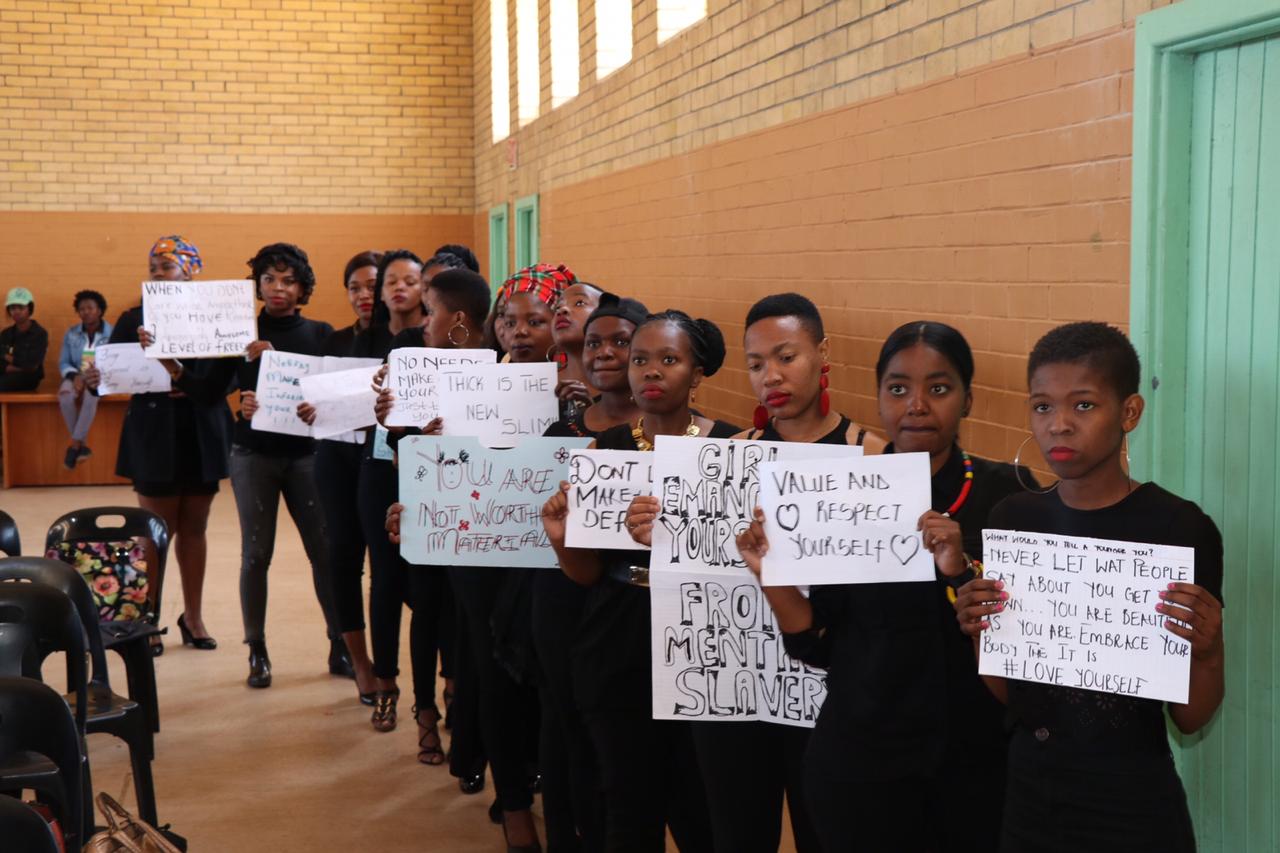 WHEN YOU DON'T
Care what Anyone think
of you HAVE
AWESOME
LEVEL OF FREEDOM
Nobody
MAKE
Inferio
your
!!!
NO NEED
MAKE
YOUR
Just
YOU
THICK IS THE
NEW SLIM!
YOU ARE
NOT WORTH
MATERIAL
DONT
MAKE
DEF
GIRL
EMANC
YOURS
FROM
MENTAL
SLAVER
VALUE AND
RESPECT
YOURSELF
WHAT WOULD YOU TELL A YOUNGER YOU?
-NEVER LET WAT PEOPLE
SAY ABOUT YOU GET YOU
DOWN... YOU ARE BEAUT
AS YOU ARE. EMBRACE YOUR
BODY THE IT IS
#LOVE YOURSELF